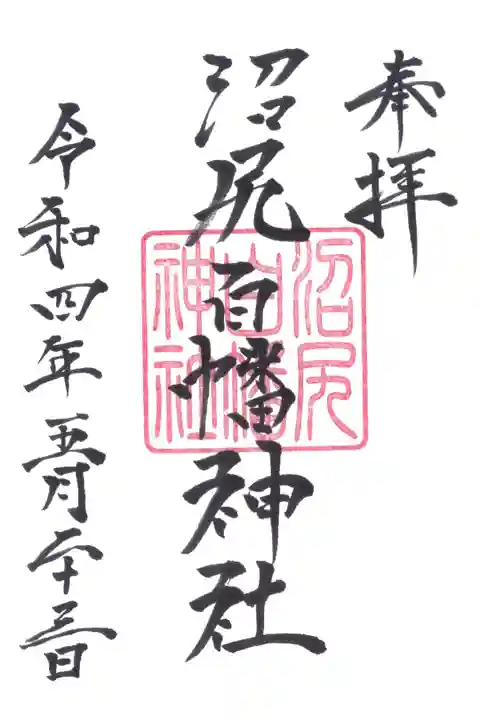 奉拝
沼尻百幡神社
令和四年五月二十三日
沼尻
白幡
神社